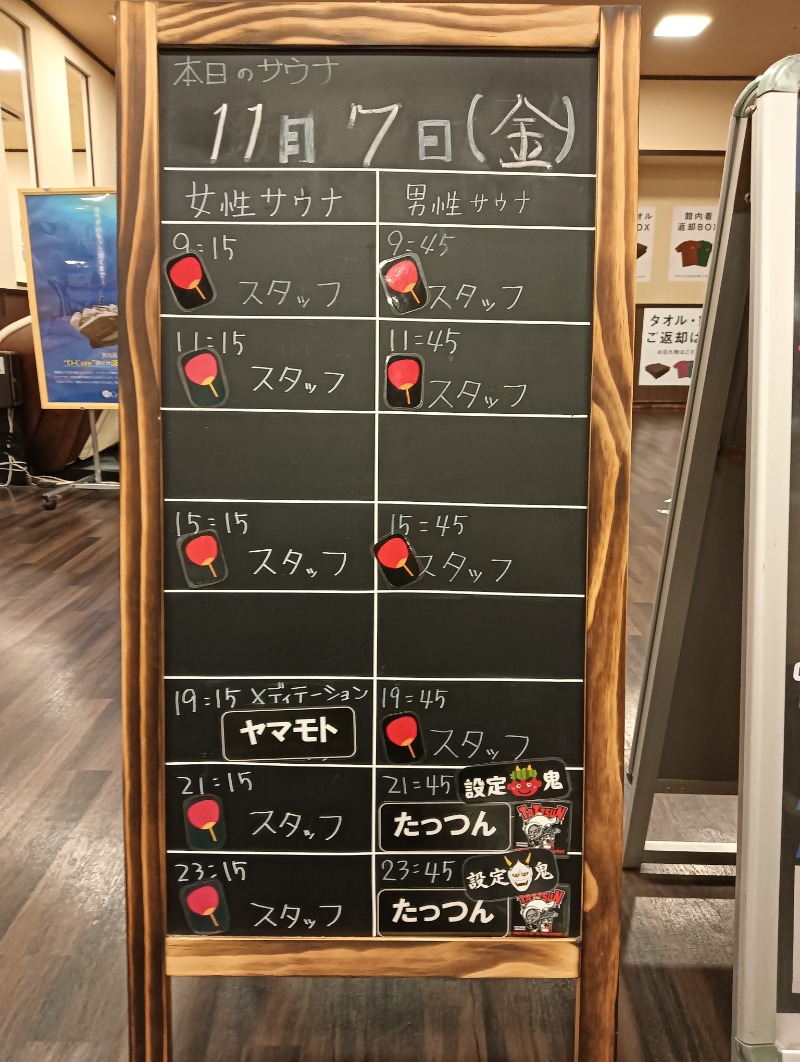 本日のサウナ
11月 7日(金)
女性サウナ 男性サウナ
9:15 9:45
スタッフ スタッフ
11:15 11:45
スタッフ スタッフ
15:15 15:45
スタッフ スタッフ
19:15 メディテーション 19:45
ヤマモト スタッフ
21:15 21:45 設定 鬼
スタッフ たっつん TATTSUN
23:15 23:45 設定 鬼
スタッフ たっつん TATTSUN
館内着
返却BOX
タオル・
ご返却は